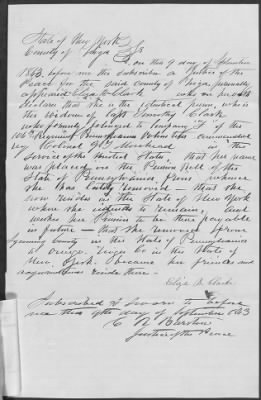 State of New York
County of Tioga } SS
on the 9 day of September
1863, before me the subscriber a Justice of the
Peace for the said County of Tioga, personally
appeared Eliza B. Clark who on oath
declare that she is the identical person, who is
the widow of Capt Timothy Clark
who formerly belonged to Company F of the
106th Regiment Pennsylvania Volunteers commanded
by Colonel Morehead in the
Service of the United States, that her name
was placed on the Pension Roll of the
State of Pennsylvania from whence
she has lately removed — that she
now resides in the State of New York
where she intends to remain, and
wishes her Pension to be there payable
in future — that she removed from
County in the State of Pennsylvania
to Owego Tioga Co in the State of
New York because her friends and
reside there —
Eliza B. Clark
Subscribed & sworn to before
me this 9th day of September 1863
C R Barstow
Justice of the Peace